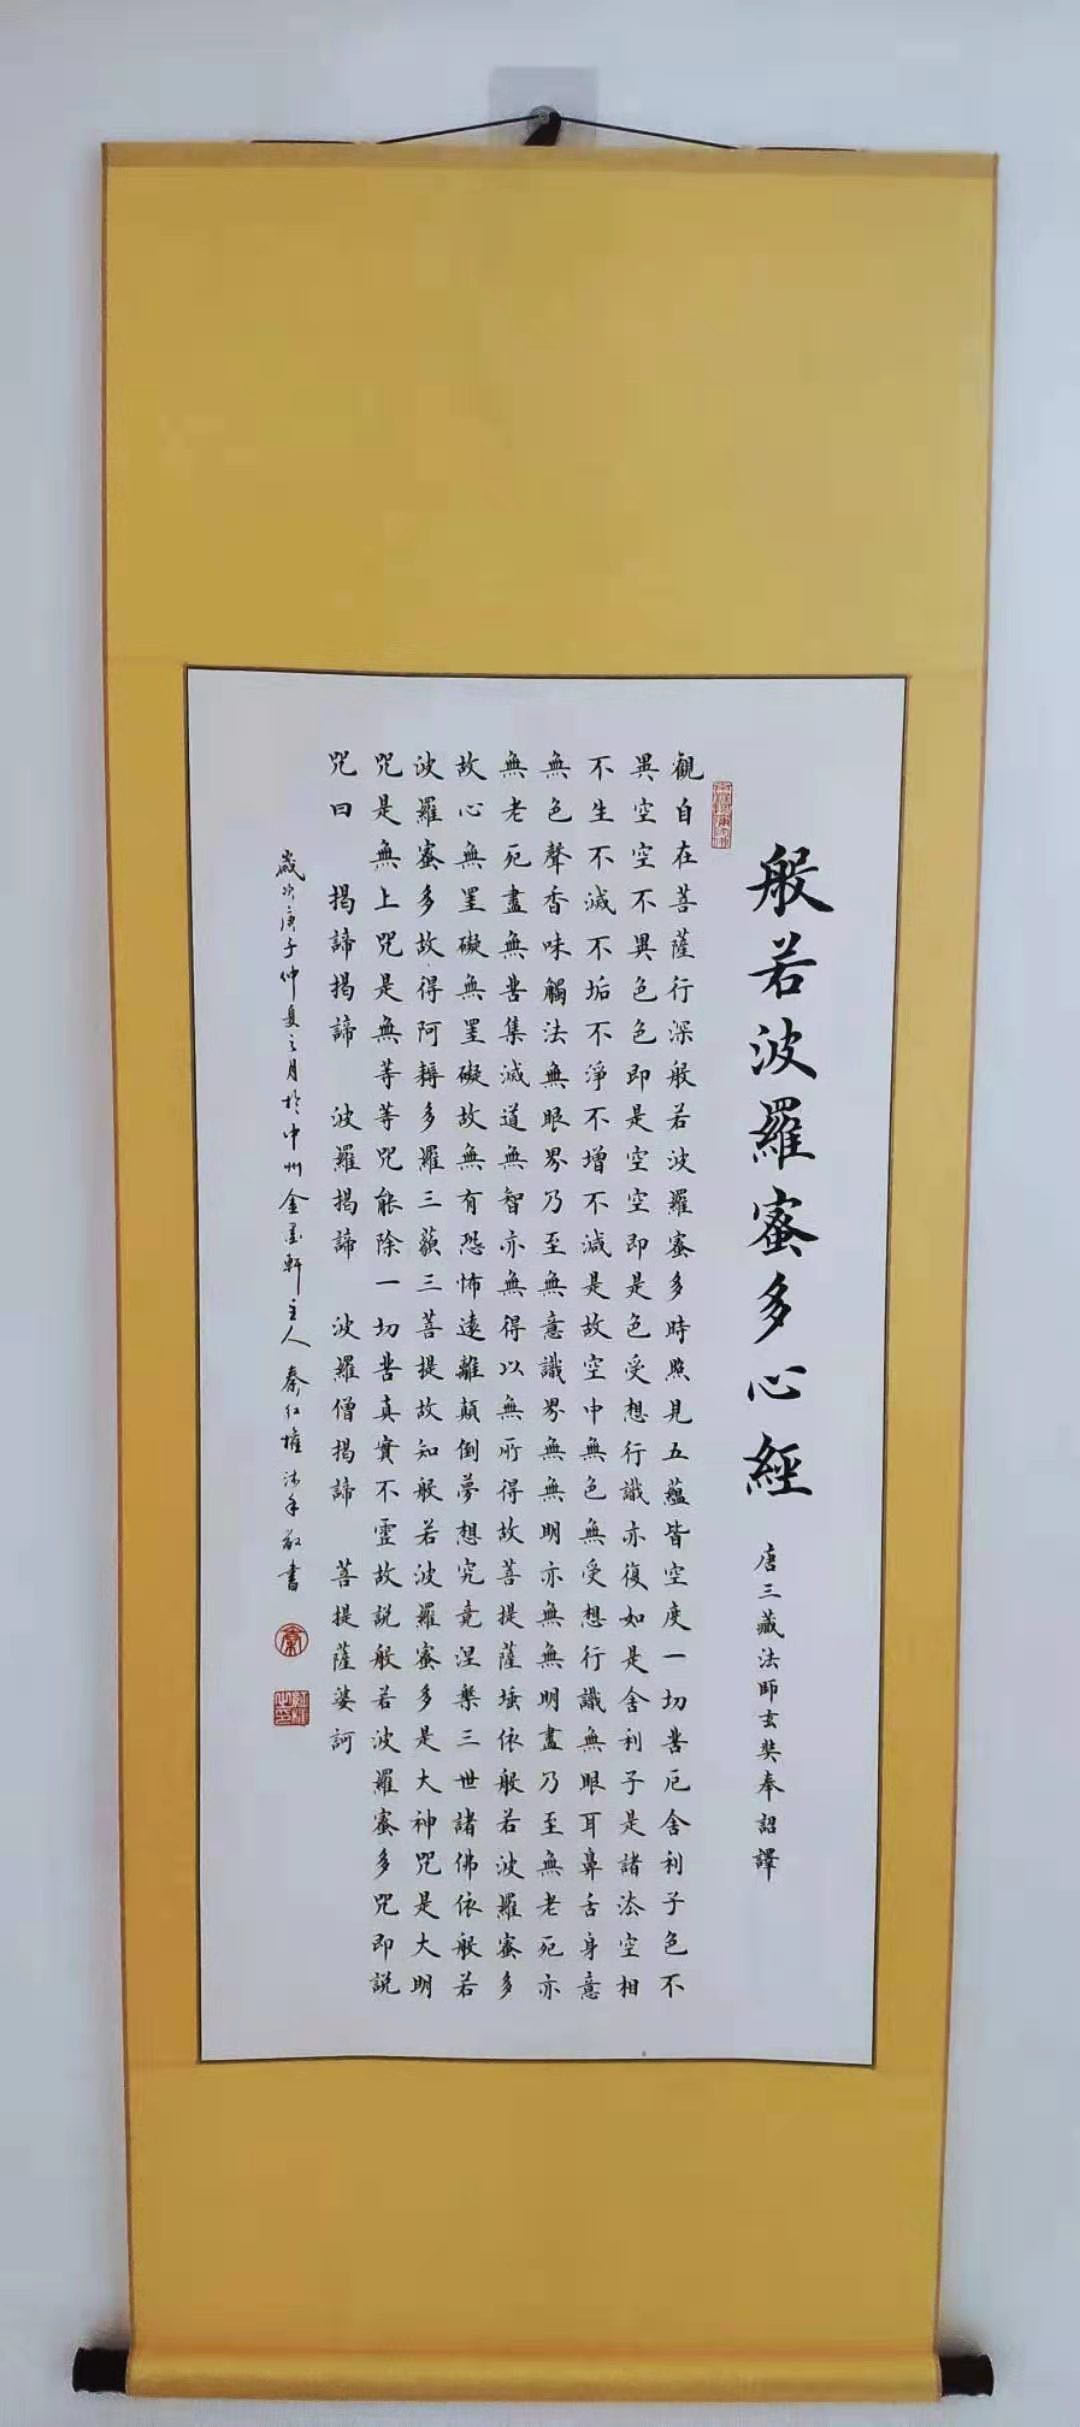 般若波羅蜜多心經
唐三藏法師玄奘奉詔譯
觀自在菩薩行深般若波羅蜜多時照見五蘊皆空度一切苦厄舍利子色不
異空空不異色色即是空空即是色受想行識亦復如是舍利子是諸法空相
不生不滅不垢不淨不增不減是故空中無色無受想行識無眼耳鼻舌身意
無色聲香味觸法無眼界乃至無意識界無無明亦無無明盡乃至無老死亦
無老死盡無苦集滅道無智亦無得以無所得故菩提薩埵依般若波羅蜜多
故心無罣礙無罣礙故無有恐怖遠離顛倒夢想究竟涅槃三世諸佛依般若
波羅蜜多故得阿耨多羅三藐三菩提故知般若波羅蜜多是大神咒是大明
咒是無上咒是無等等咒能除一切苦真實不虛故說般若波羅蜜多咒即說
咒曰 揭諦揭諦 波羅揭諦 波羅僧揭諦 菩提薩婆訶
歲次庚子仲夏之月於中州金墨軒主人秦红權沐手敬書
秦